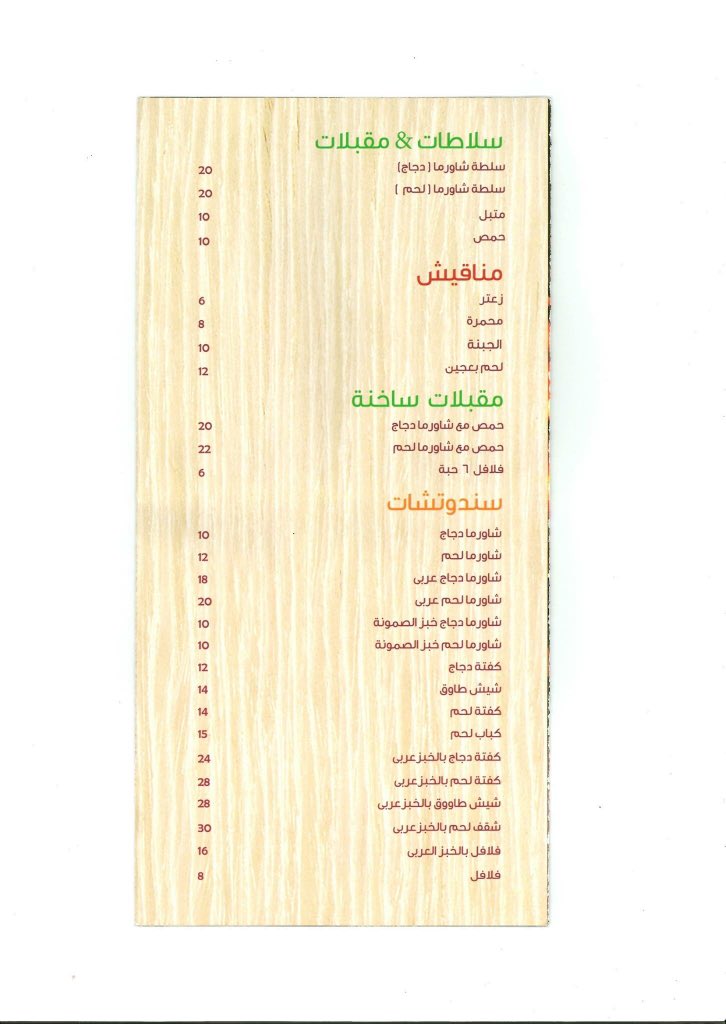 سلاطات & مقبلات
سلطة شاورما (دجاج) 20
سلطة شاورما (لحم ) 20
متبل 10
حمص 10
مناقيش
زعتر 6
محمرة 8
الجبنة 10
لحم بعجين 12
مقبلات ساخنة
حمص مع شاورما دجاج 20
حمص مع شاورما لحم 22
فلافل ٦ حبة 6
سندوتشات
شاورما دجاج 10
شاورما لحم 12
شاورما دجاج عربى 18
شاورما لحم عربى 20
شاورما دجاج خبز الصمونة 10
شاورما لحم خبز الصمونة 10
كفتة دجاج 12
شيش طاوق 14
كفتة لحم 14
كباب لحم 15
كفتة دجاج بالخبز عربى 24
كفتة لحم بالخبز عربى 28
شيش طاووق بالخبز عربى 28
شقف لحم بالخبز عربى 30
فلافل بالخبز العربى 16
فلافل 8